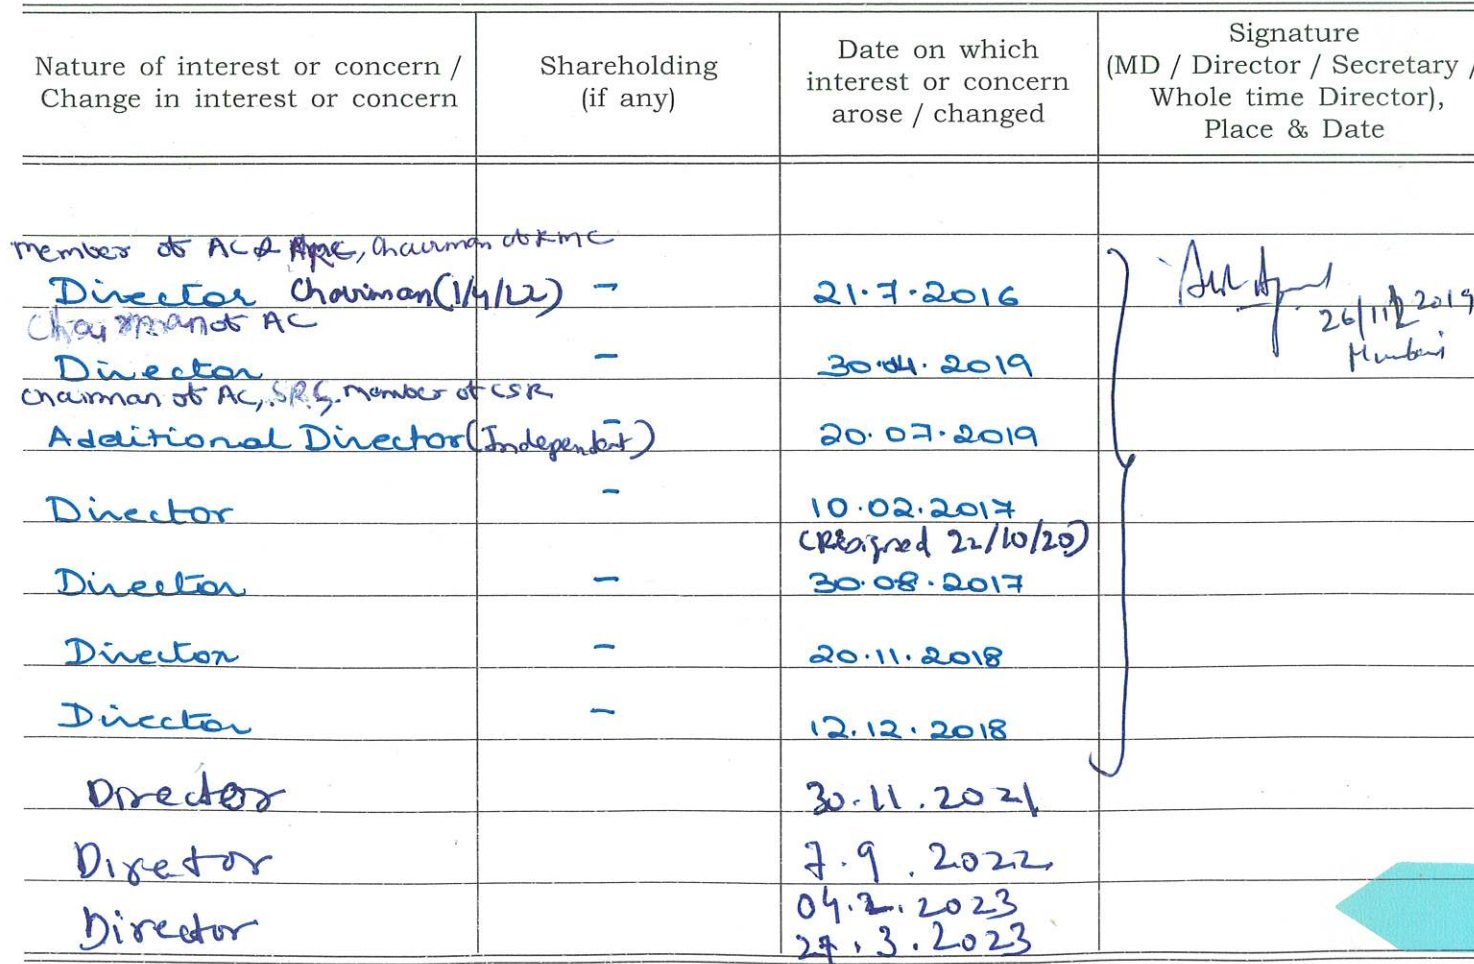 Nature of interest or concern /
Change in interest or concern
Shareholding
(if any)
Date on which
interest or concern
arose / changed
Signature
(MD / Director / Secretary /
Whole time Director),
Place & Date
member of AC & Chairman of RMC
Director Chairman (1/4/22) - 21.7.2016
26/11/2019
Mumbai
Chairman of AC
Director - 30.04.2019
Chairman of AC, SRC, Member of CSR
Additional Director (Independent) - 20.07.2019
Director - 10.02.2017
(Resigned 22/10/20)
Director - 30.08.2017
Director - 20.11.2018
Director - 12.12.2018
Director 30.11.2021
Director 7.9.2022
04.2.2023
Director 27.3.2023